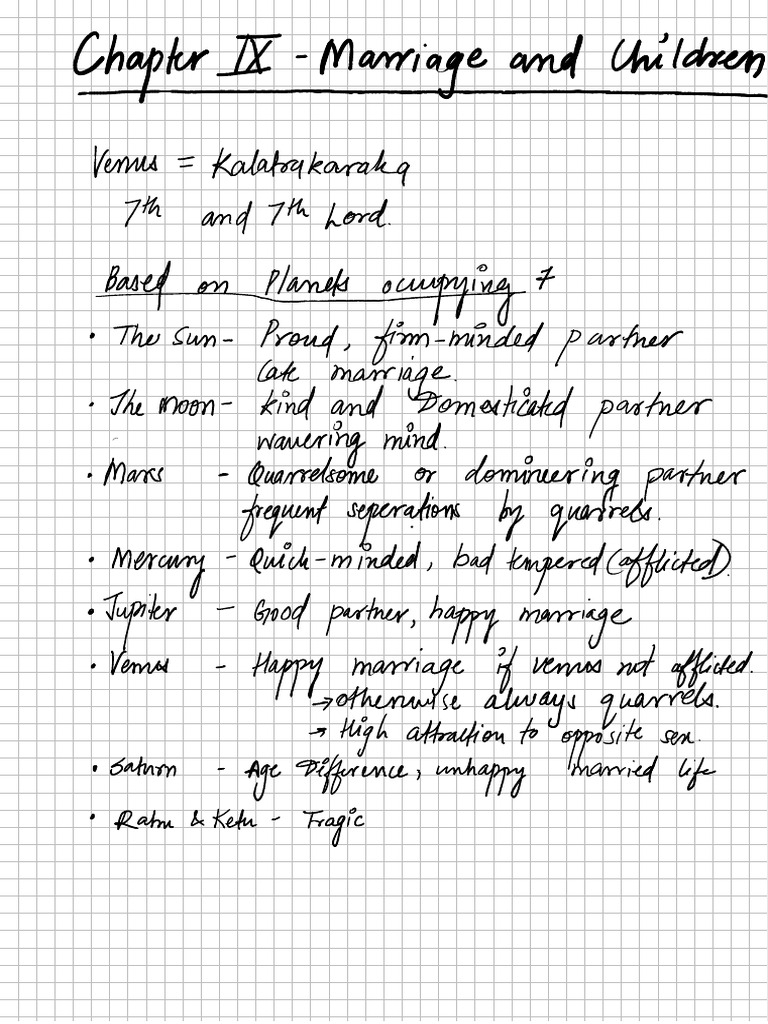 Chapter IX - Marriage and Children
Venus = Kalatrakaraka
7th and 7th Lord.
Based on Planets occupying 7
• The Sun - Proud, firm-minded partner
Late marriage.
• The Moon - kind and Domesticated partner
wavering mind.
• Mars - Quarrelsome or domineering partner
frequent seperations by quarrels.
• Mercury - Quick-minded, bad tempered (afflicted).
• Jupiter - Good partner, happy marriage
• Venus - Happy marriage if venus not afflicted.
→ otherwise always quarrels.
→ High attraction to opposite sex.
• Saturn - Age Difference, unhappy married life
• Rahu & Ketu - Tragic